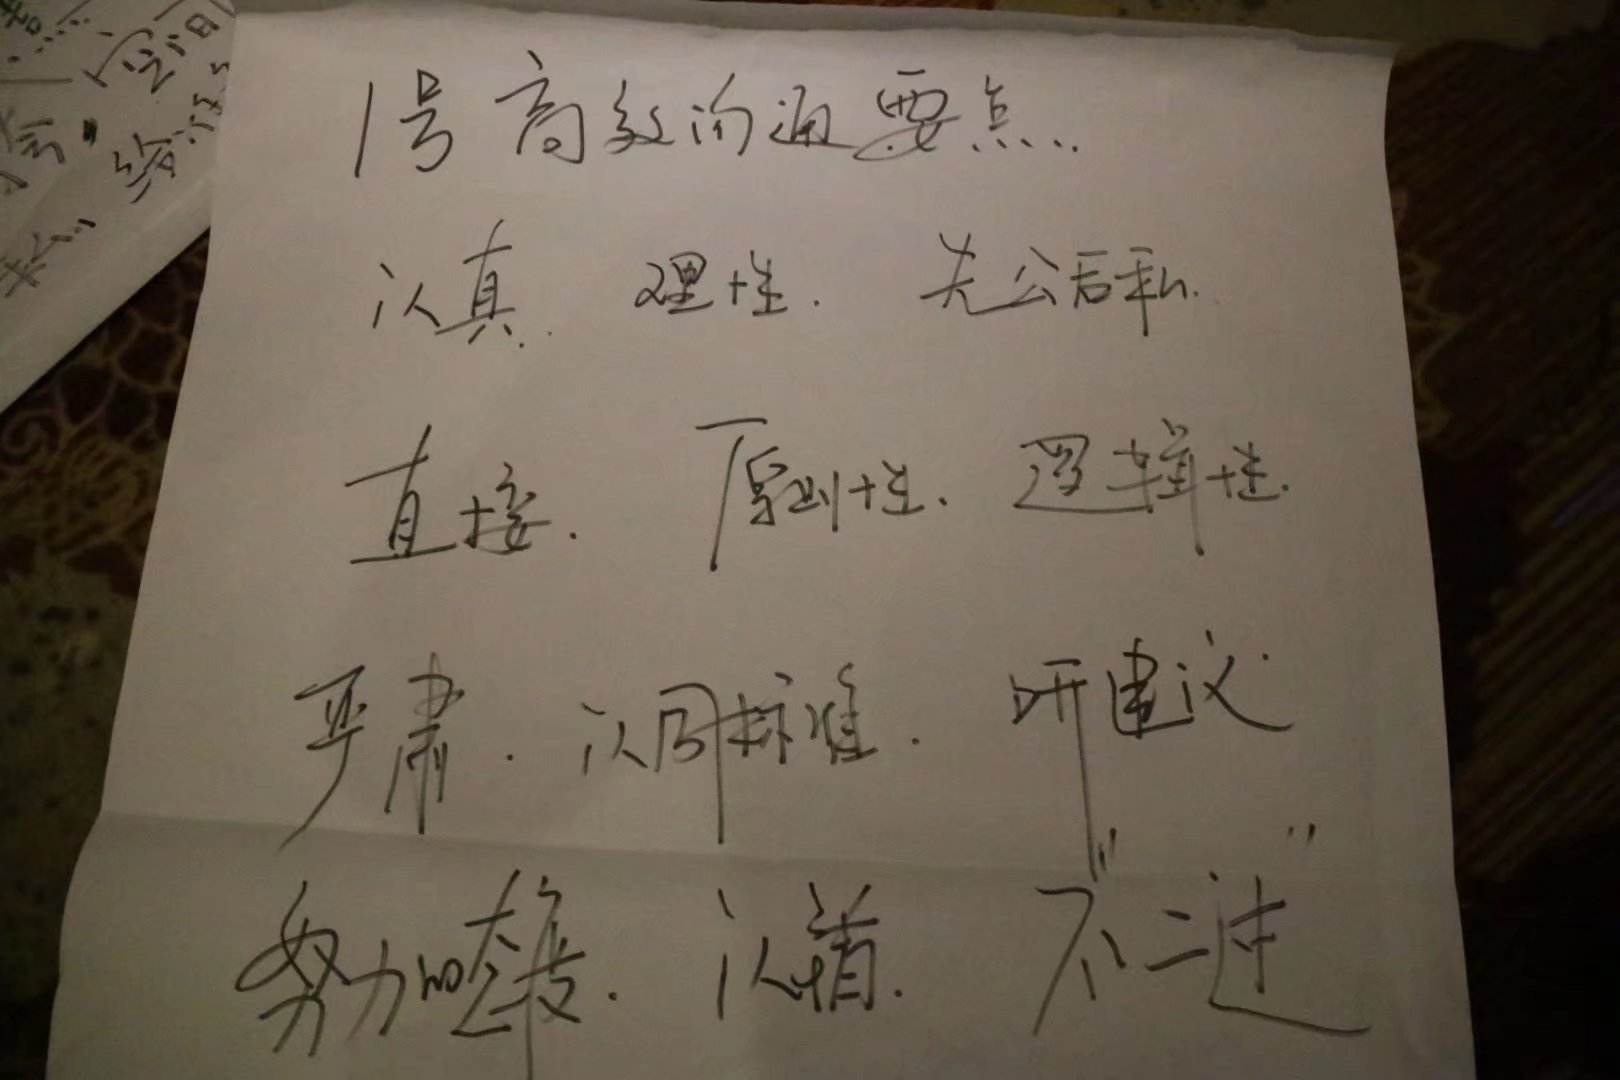 1号高效沟通要点……
认真. 理性. 先公后私.
直接. 原则性. 逻辑性.
严肃. 认同标准. 听建议
努力 态度. 认错. 不"二过"